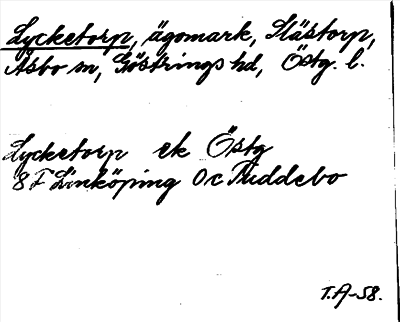 Lycketorp, ägomark, Slästorp,
Åsbo sn, Göstrings hd, Östg. l.
Lycketorp ek Östg
8 F Linköping 0 c Ruddebo
T.A-58.